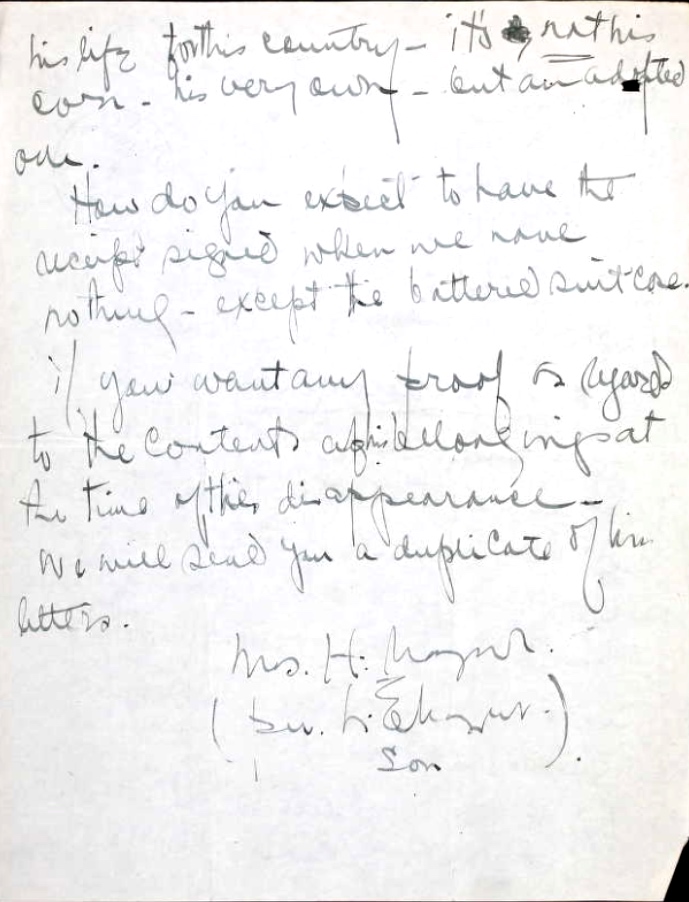 his life for this country – it's not his
own – his very own – but an adopted
one.
How do you expect to have the
receipt signed when we have
nothing – except the battered suitcase.
if you want any proof as regards
to the contents of his belongings at
the time of his disappearance –
we will send you a duplicate of his
letters.
Mrs. H.
(
Son
).